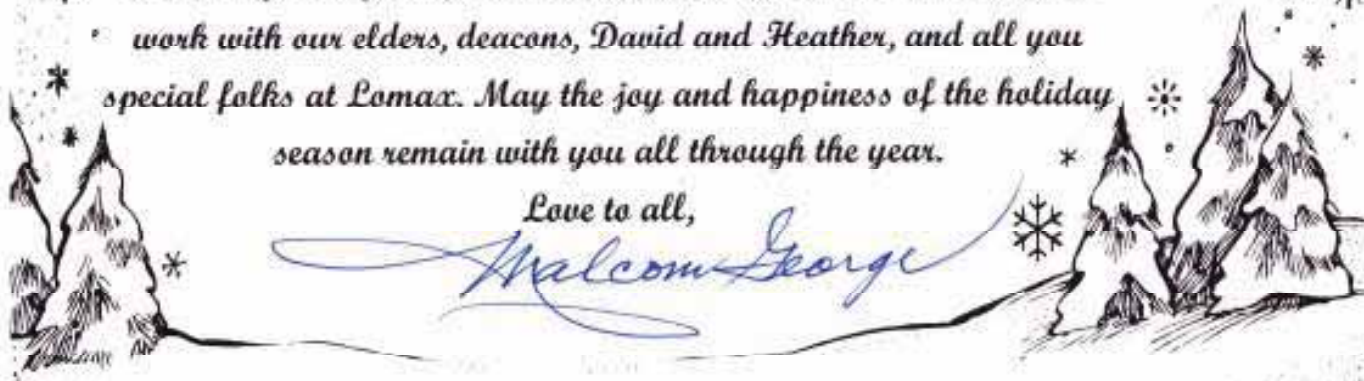 work with our elders, deacons, David and Heather, and all you
special folks at Lomax. May the joy and happiness of the holiday
season remain with you all through the year.
Love to all,
Malcom George